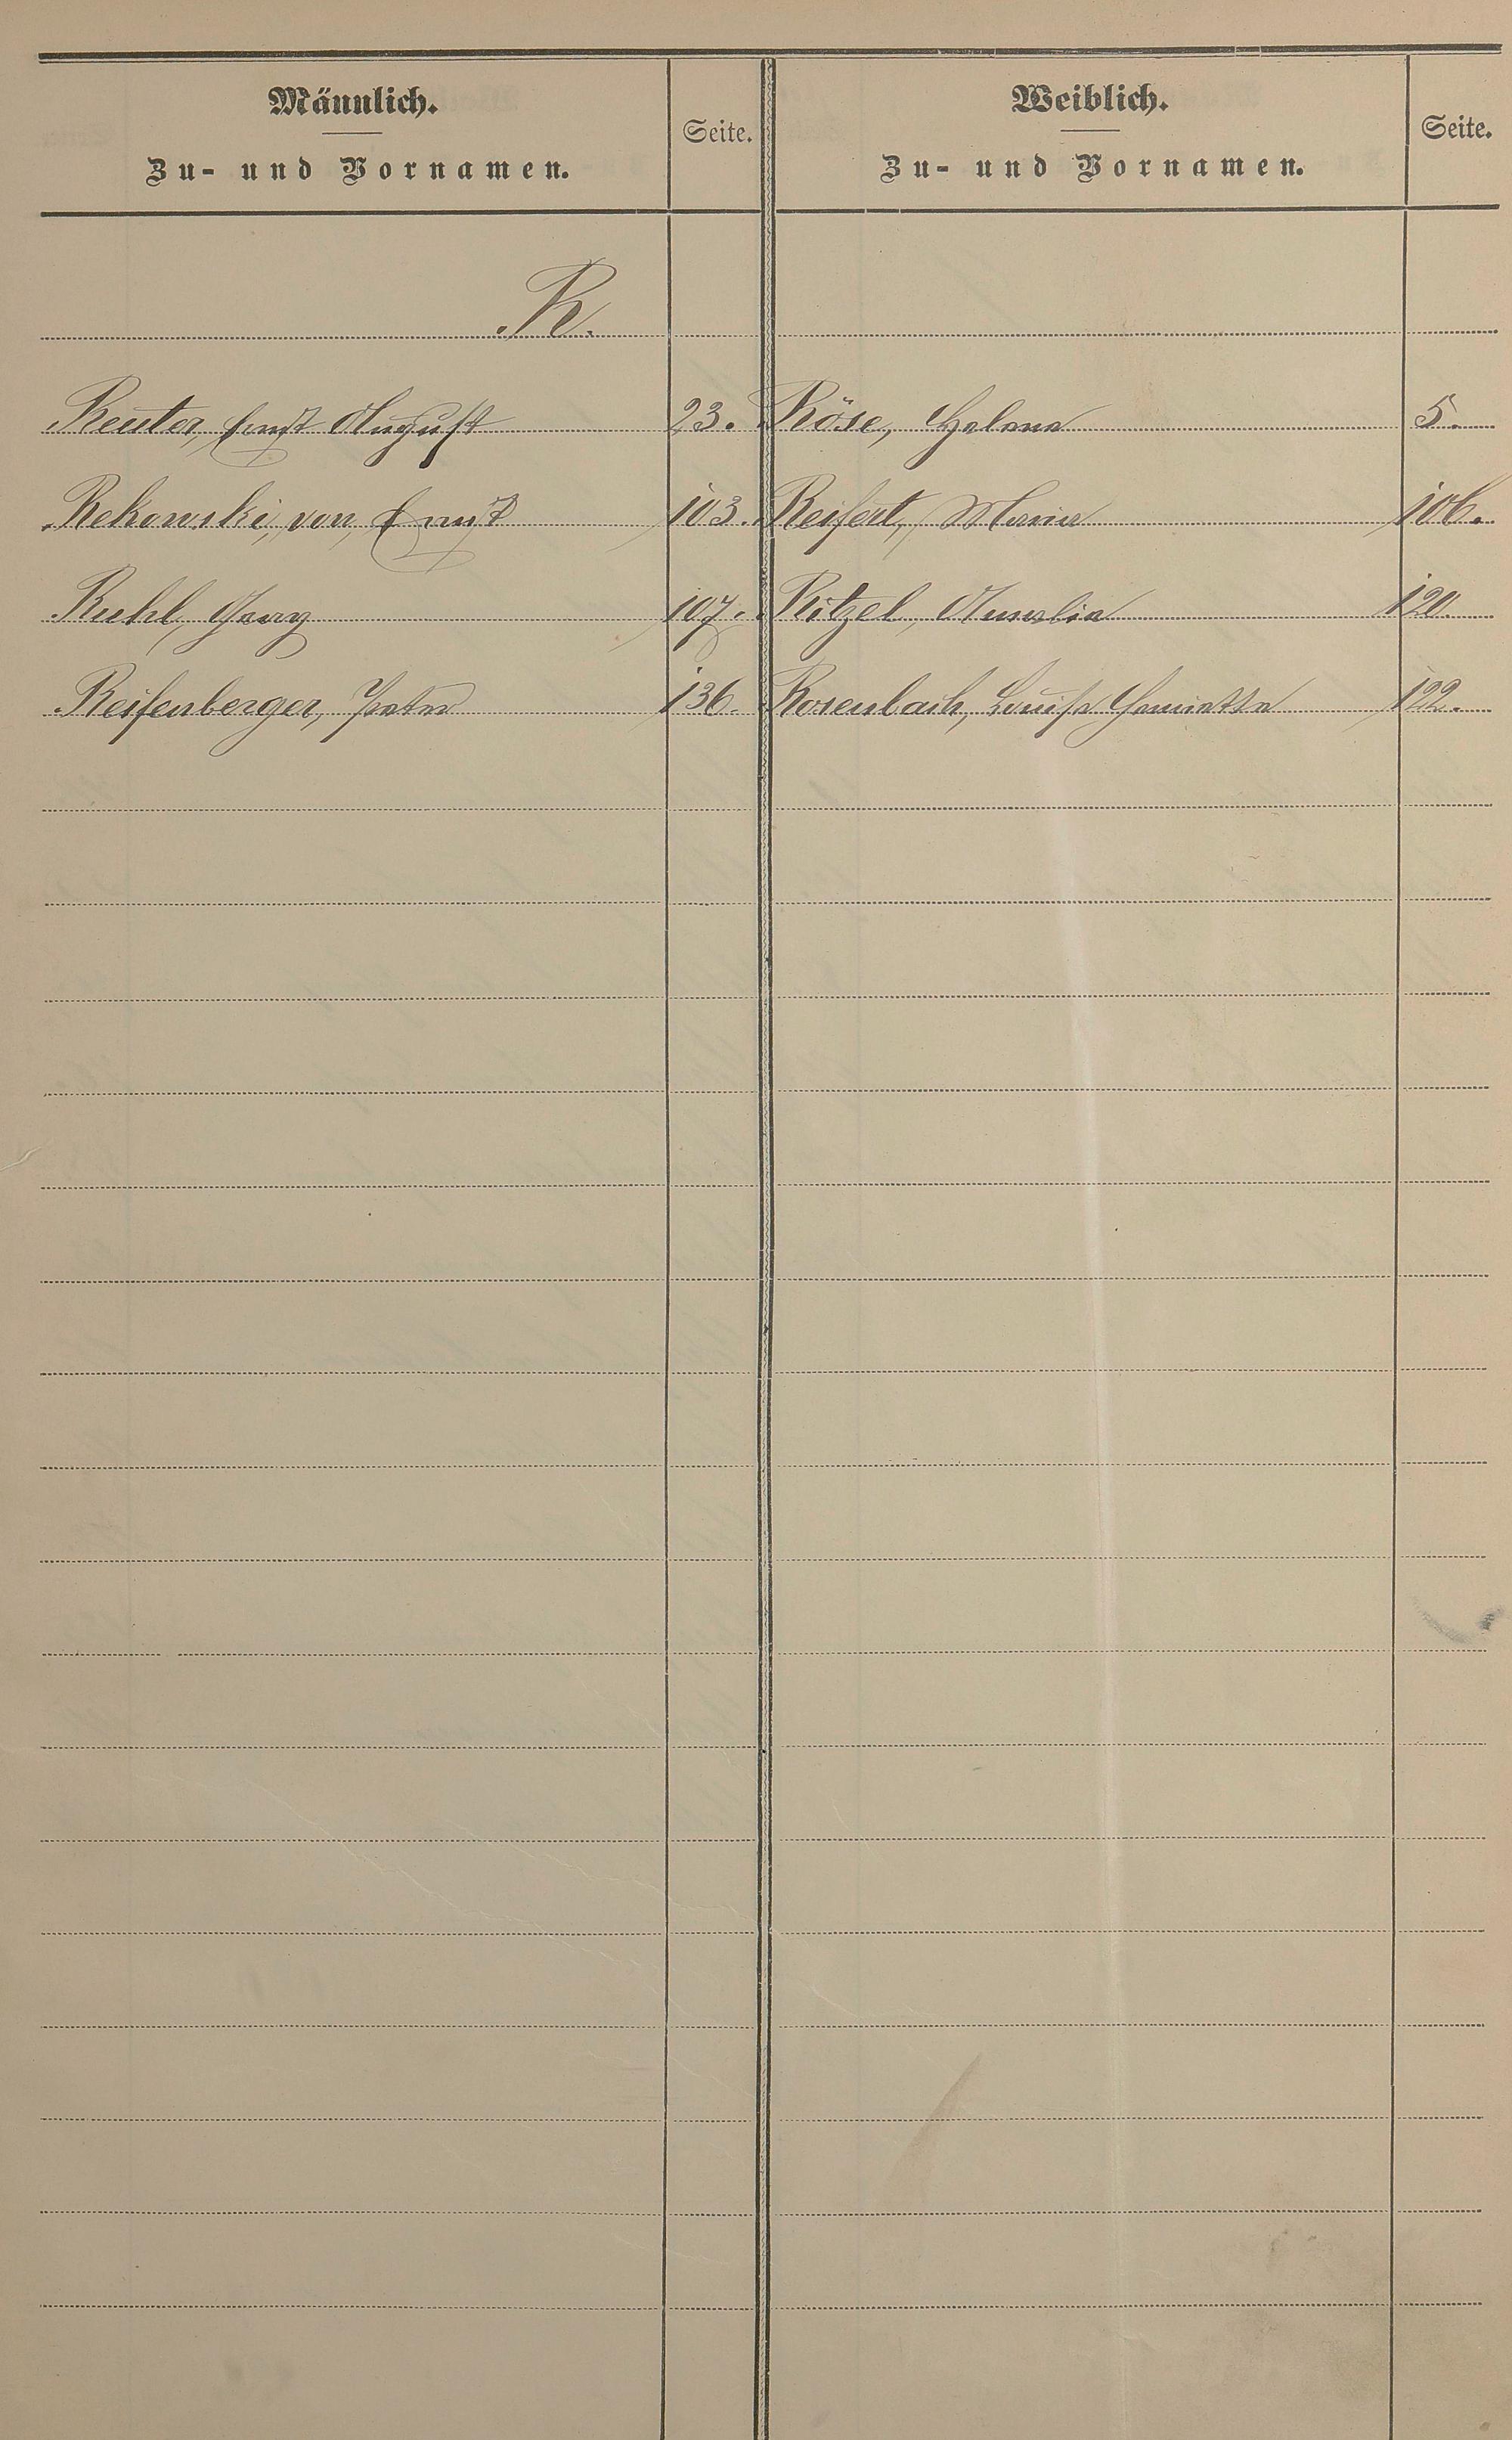 Männlich.
Zu- und Vornamen.
Seite.
Weiblich.
Zu- und Vornamen.
Seite.
R.
Reuter, Ernst August 23. Röse, Helene 5.
Rekowski, von, Ernst 103. Reifert, Maria 106.
Ruhl, Georg 107. Ritzel, Amalie 120.
Reifenberger, Peter 136. Rosenbach, Louise Henriette 122.